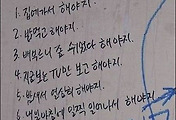 1. 집에가서 해야지.
2. 밥먹고 해야지.
3. 배부르니 좀 쉬었다 해야지.
4. 지금보는 TV만 보고 해야지.
5. 밤새서 열심히 해야지.
6. 내일아침에 일찍 일어나서 해야지